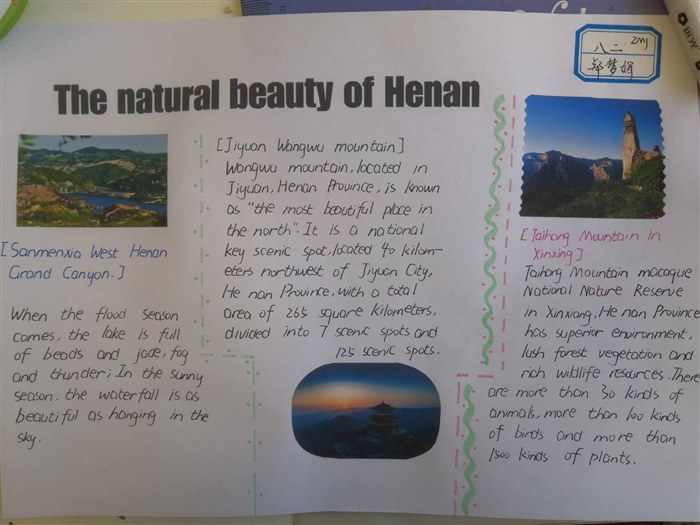 八二 ZMJ
郑梦娟
The natural beauty of Henan
[Sanmenxia West Henan
Grand Canyon.]
When the flood season
comes, the lake is full
of beads and jade, fog
and thunder; In the sunny
season. the waterfall is as
beautiful as hanging in the
sky.
[Jiyuan Wangwu mountain]
Wangwu mountain, located in
Jiyuan, Henan Province, is known
as "the most beautiful place in
the north". It is a national
key scenic spot, located 40 kilom-
eters northwest of Jiyuan City,
He nan Province, with a total
area of 265 square kilometers,
divided into 7 scenic spots and
125 scenic spots.
[Taihang Mountain in
Xinxing]
Taihang Mountain macaque
National Nature Reserve
in Xinxiang, He nan Province
has superior environment,
lush forest vegetation and
rich wildlife resources. There
are more than 30 kinds of
animals, more than 100 kinds
of birds and more than
1500 kinds of plants.